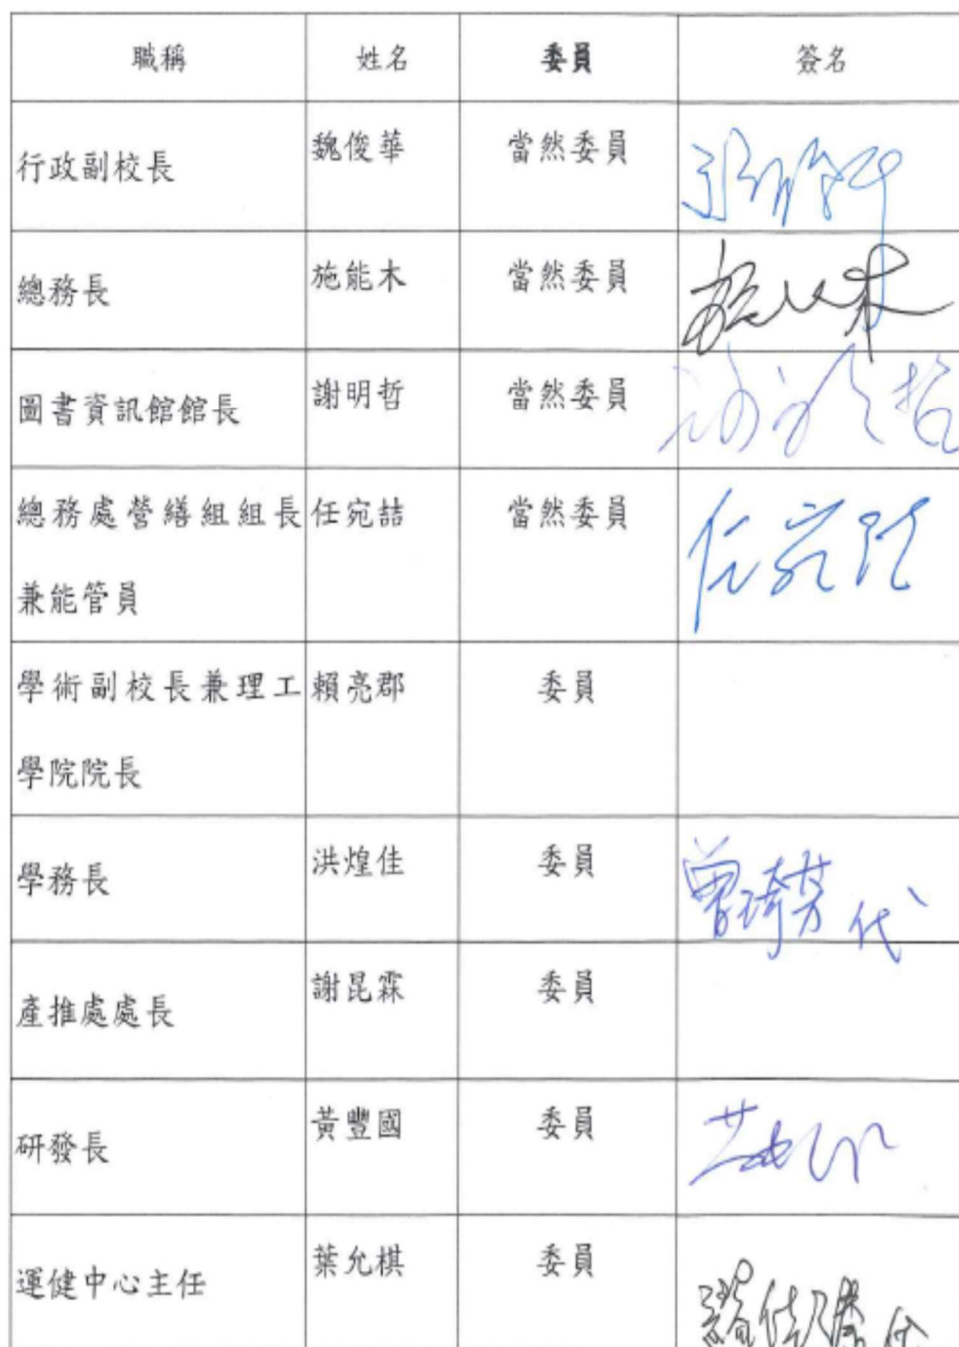 職稱 姓名 委員 簽名
行政副校長 魏俊華 當然委員
總務長 施能木 當然委員 施能木
圖書資訊館館長 謝明哲 當然委員 謝明哲
總務處營繕組組長 任宛詰 當然委員 任宛詰
兼能管員
學術副校長兼理工 賴亮郡 委員
學院院長
學務長 洪煌佳 委員 曾琦芳 代
產推處處長 謝昆霖 委員
研發長 黃豐國 委員
運健中心主任 葉允棋 委員 代